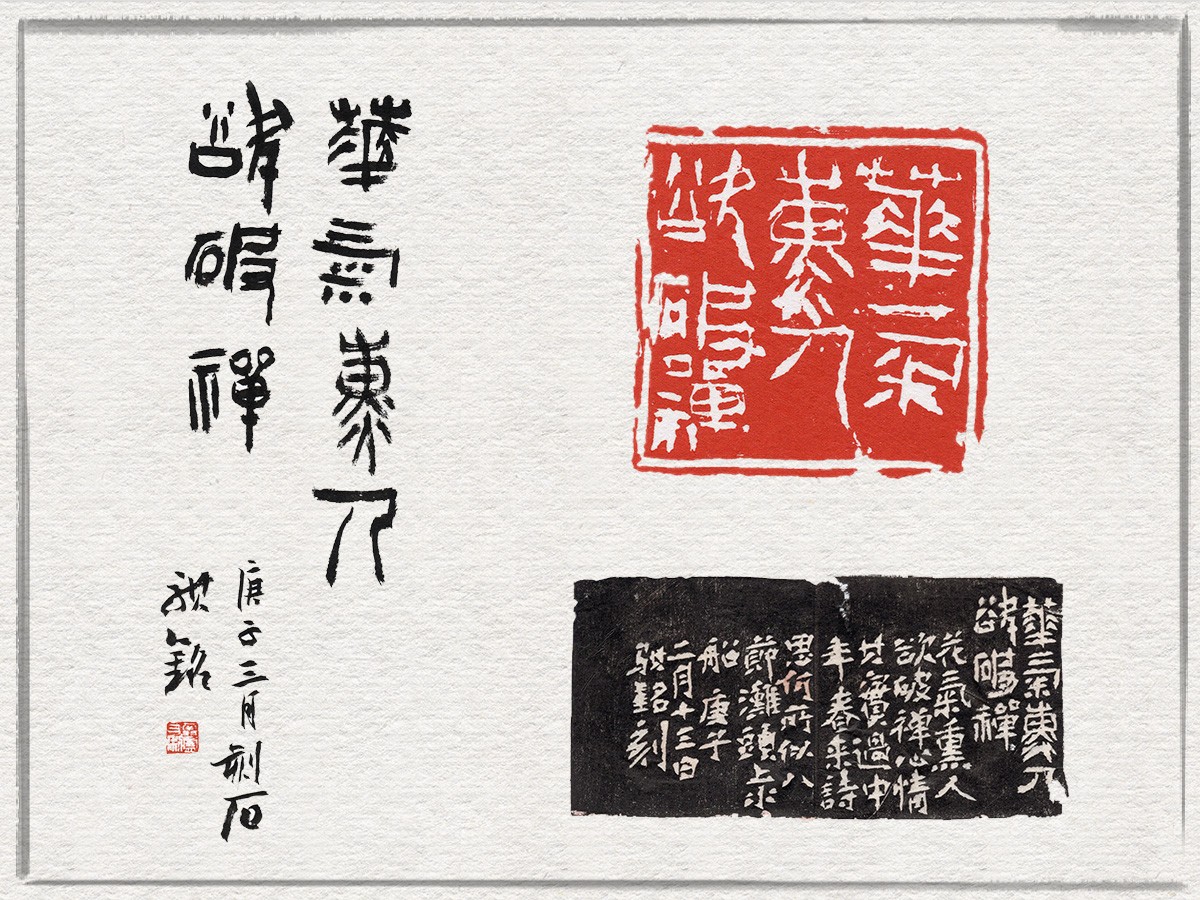 華氣熏人
欲破禪
庚子三月刻石
銘
華氣
熏人
欲破禪
華氣熏人
欲破禪
花氣熏人
欲破禪心情
其實過中
年春來詩
思何所似八
節灘頭上水
船庚子
二月十三日
銘刻